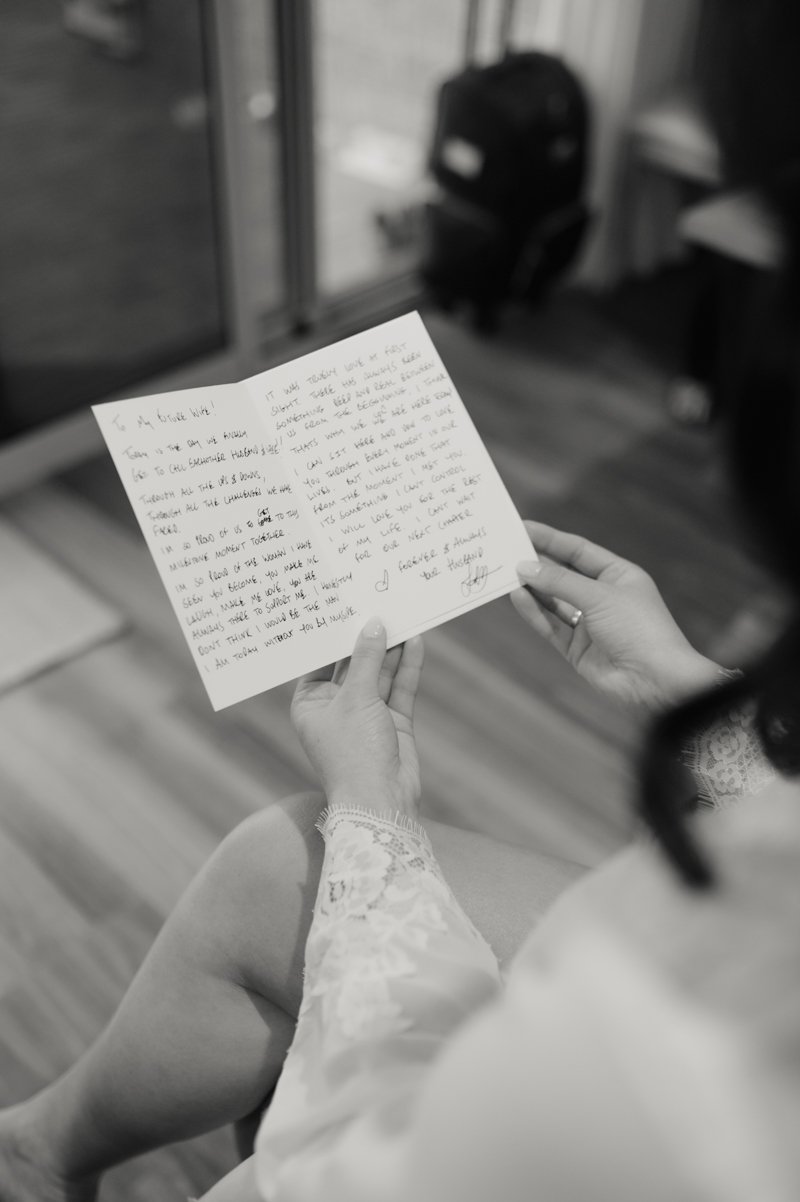 TO MY FUTURE WIFE!
TODAY IS THE DAY WE FINALLY
GET TO CALL EACHOTHER HUSBAND & WIFE!!
THROUGH ALL THE UPS & DOWNS,
THROUGH ALL THE CHALLENGES WE HAVE
FACED.
IM SO PROUD OF US TO GET TO THIS
MILESTONE MOMENT TOGETHER.
IM SO PROUD OF THE WOMAN I HAVE
SEEN YOU BECOME, YOU MAKE ME
LAUGH, MAKE ME LOVE, YOU ARE
ALWAYS THERE TO SUPPORT ME. I HONESTLY
DON'T THINK I WOULD BE THE MAN
I AM TODAY WITHOUT YOU BY MYSIDE.
IT WAS TRUELY LOVE AT FIRST
SIGHT. THERE HAS ALWAYS BEEN
SOMETHING DEEP AND REAL BETWEEN
US FROM THE BEGINNING. I THINK
THATS WHY WE ARE HERE
I CAN SIT HERE AND VOW TO LOVE
YOU THROUGH EVERY MOMENT IN OUR
LIVES. BUT I HAVE DONE THAT
FROM THE MOMENT I MET YOU.
ITS SOMETHING I CAN'T CONTROL
I WILL LOVE YOU FOR THE REST
OF MY LIFE. I CAN'T WAIT
FOR OUR NEXT CHAPTER
FOREVER & ALWAYS
YOUR HUSBAND